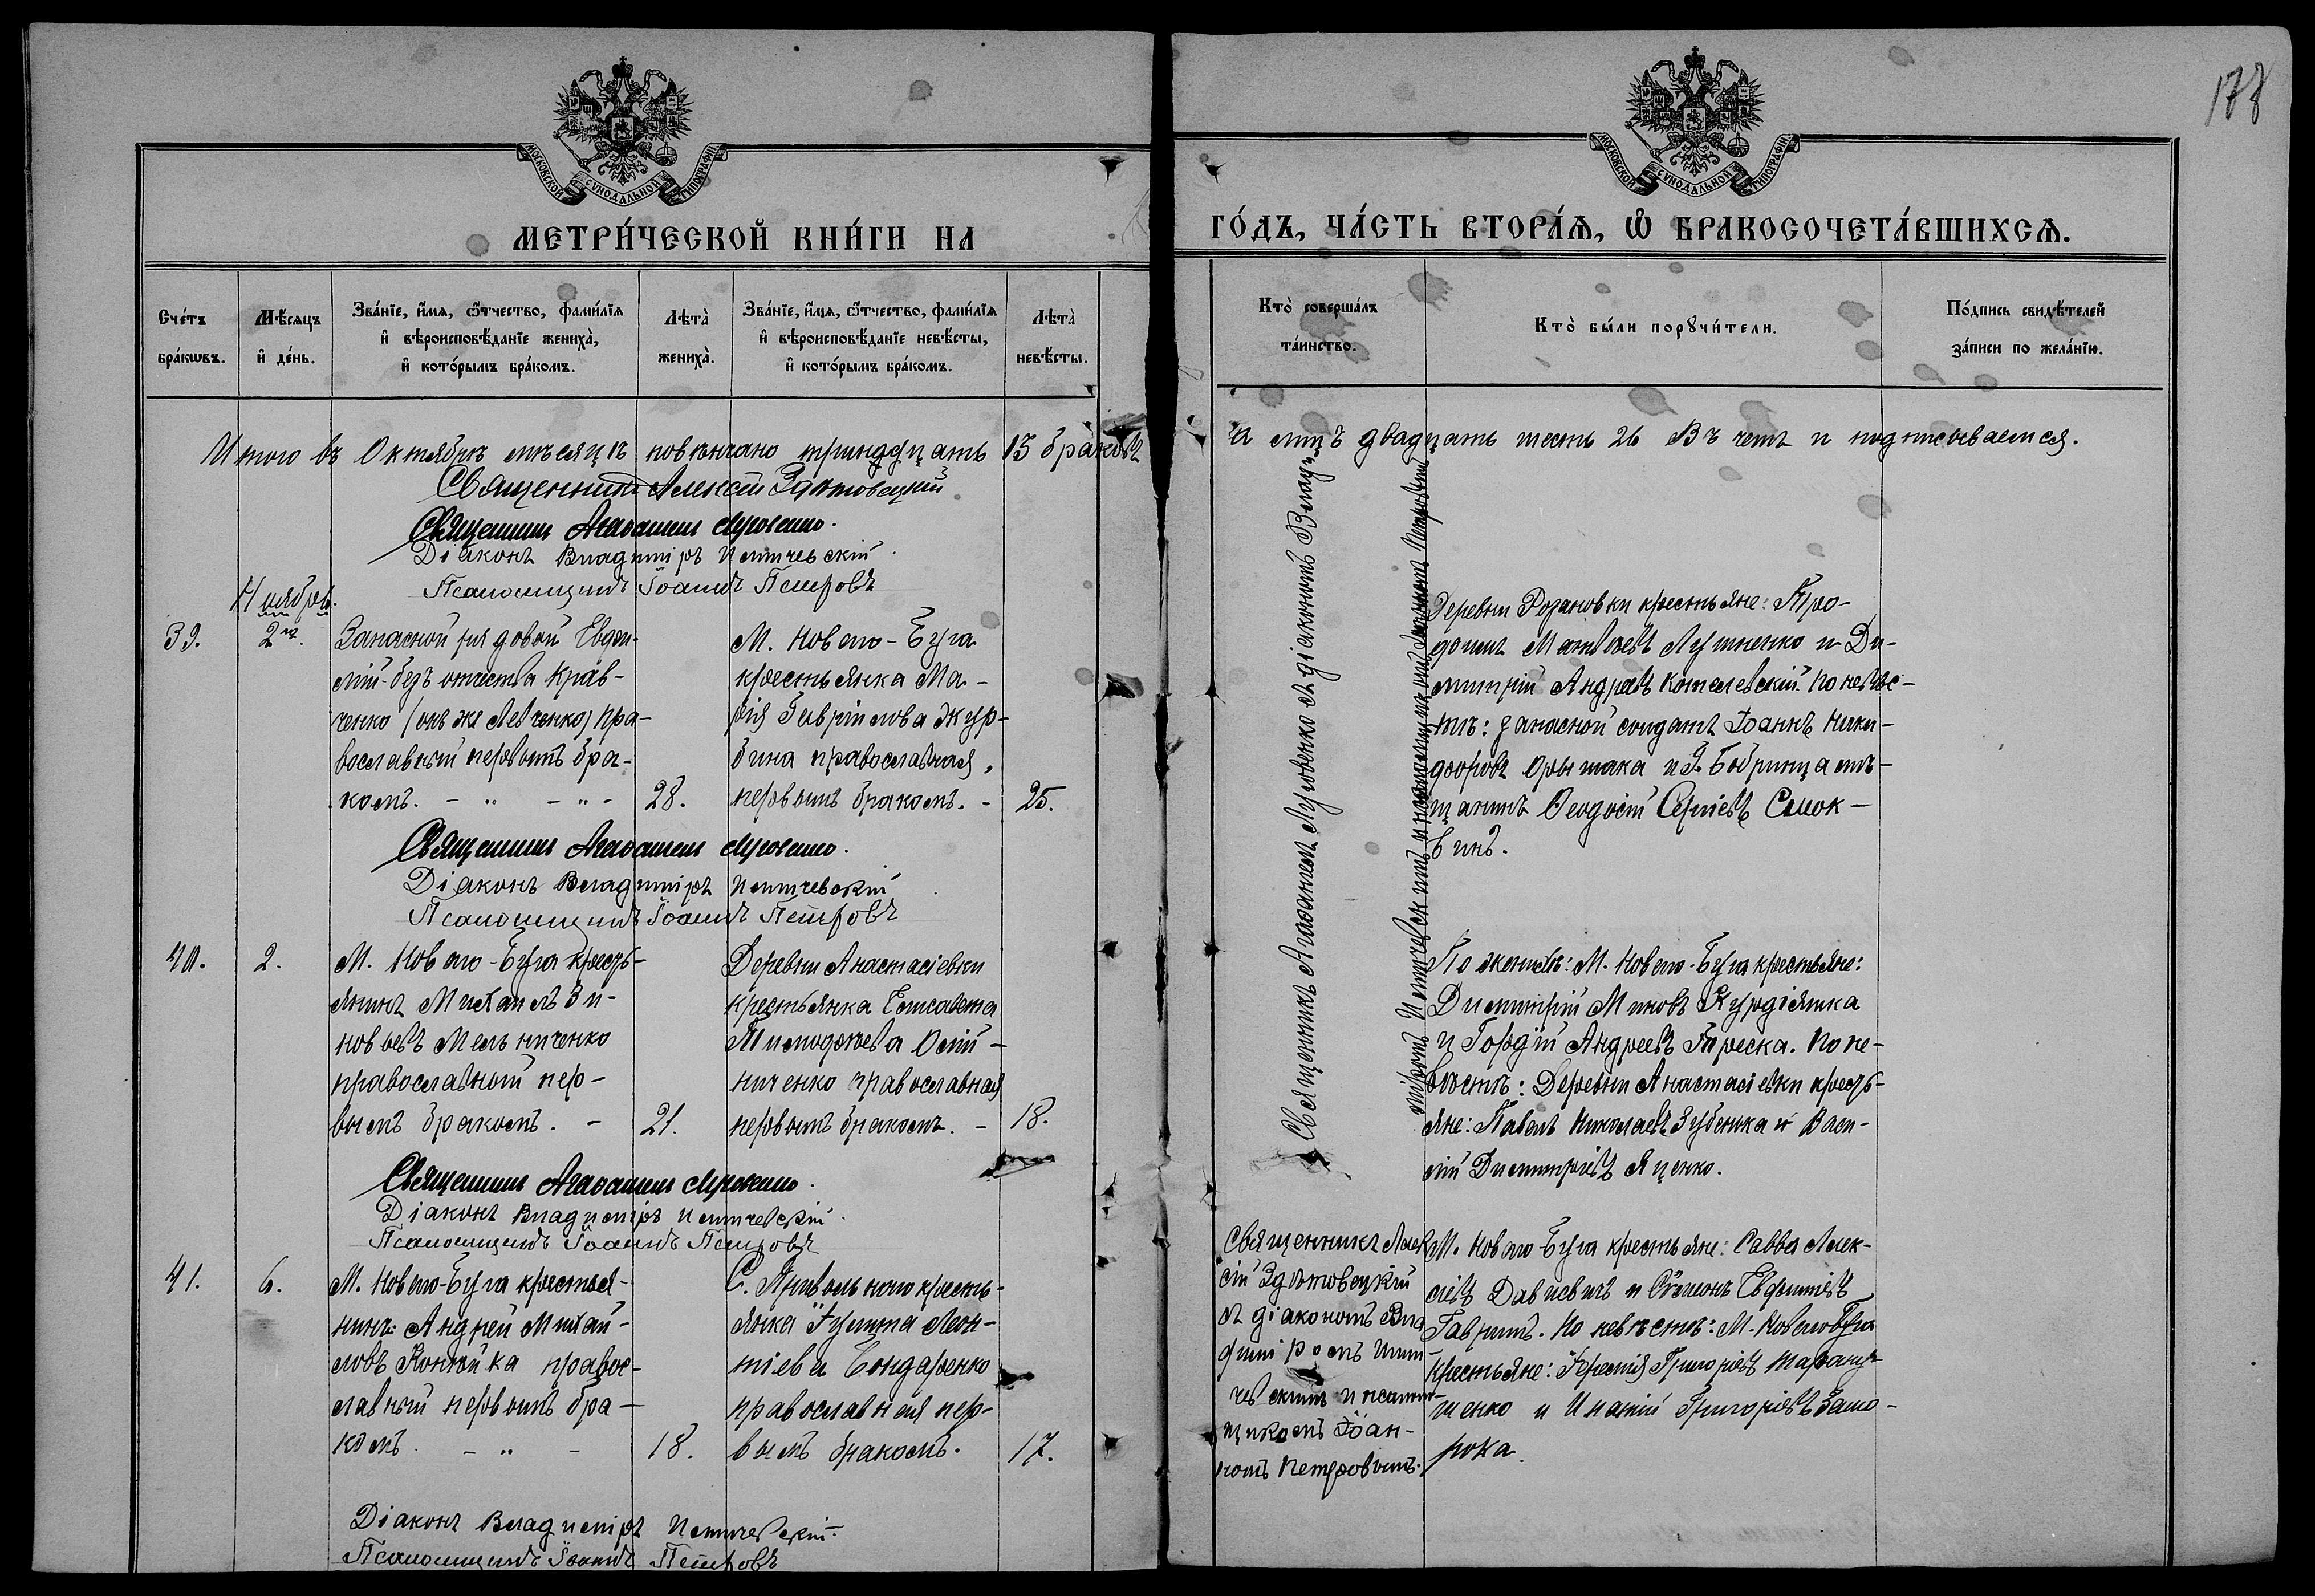 178
МОСКОВСКОЙ СѴНОДАЛЬНОЙ ТИПОГРАФІИ
МОСКОВСКОЙ СѴНОДАЛЬНОЙ ТИПОГРАФІИ
МЕТРИ́ЧЕСКОЙ КНИ́ГИ НА
ГО́ДЪ, ЧА́СТЬ ВТОРА́Ѧ, Ѽ БРАКОСОЧЕТА́ВШИХСѦ.
Сче́тъ
бра́кѡвъ.
Мѣ́сяцъ
и҆ де́нь.
Зва́нїе, и҆́мя, ѻ҆́тчество, фами́лїя
и҆ вѣроисповѣ́данїе жениха̀,
и҆ кото́рымъ бра́комъ.
Лѣта̀
жениха̀.
Зва́нїе, и҆́мя, ѻ҆́тчество, фами́лїя
и҆ вѣроисповѣ́данїе невѣ́сты,
и҆ кото́рымъ бра́комъ.
Лѣта̀
невѣ́сты.
Кто̀ соверша́лъ
та́инство.
Кто̀ бы́ли порꙋчи́тели.
По́дпись свидѣ́телей
за́писи по жела́нїю.
Итого въ Октябрѣ мѣсяцѣ повѣнчано тринадцать 13 браковъ
а лицъ двадцать шесть 26 Въ чемъ и подписываемся.
Священникъ Алексій Здѣтовецкій
Священникъ Агаѳангелъ Луговенко.
Діаконъ Владиміръ
Псаломщикъ Іоаннъ Петровъ
Ноябрь.
39.
2го.
Запасной рядовой Евфи-
мій-безъ отчества Крав-
ченко (онъ же Левченко) пра-
вославный первымъ бра-
комъ. - " - " -
28.
М. Новаго-Буга
крестьянка Ма-
рія Гавріилова Жур-
бина православная,
первымъ бракомъ. -
25.
Священникъ Агаѳангелъ Луговенко съ діакономъ Влади-
міромъ и псаломщикомъ Іоанномъ Петровымъ
Деревни Розановки крестьяне: Про-
Матвѣевъ Лушненко и Ди-
митрій Андреевъ Котелевскій. По невѣс-
тѣ: запасной солдатъ Іоаннъ Ники-
форовъ и г. Бобринца мѣ-
щанинъ Ѳеодосій Сергіевъ Смок-
винъ.
Священникъ Агаѳангелъ Луговенко.
Діаконъ Владиміръ
Псаломщикъ Іоаннъ Петровъ
40.
2.
М. Новаго-Буга кресть-
янинъ Михаилъ Зи-
новьевъ Мельниченко
православный пер-
вымъ бракомъ. -
21.
Деревни Анастасіевки
крестьянка Елисавета
Тимофеева Олій-
ниченко православная
первымъ бракомъ. -
18.
По женихѣ: М. Новаго-Буга крестьяне:
Димитрій Миновъ Курдіянка
и Гордій Андреевъ По не-
вѣстѣ: Деревни Анастасіевки кресть-
яне: Павелъ Николаевъ Зубенка и Васи-
лій Димитріевъ Яценко.
Священникъ Агаѳангелъ Луговенко.
Діаконъ Владиміръ
Псаломщикъ Іоаннъ Петровъ
41.
6.
М. Новаго-Буга крестья-
нинъ Андрей Михай-
ловъ правос-
лавный первымъ бра-
комъ. - " -
18.
С. Привольнаго кресть-
янка Іулитта Леон-
тіева Бондаренко
православная пер-
вымъ бракомъ.
17.
Священникъ Алек-
сій Здѣтовецкій
съ діакономъ Вла-
диміромъ
и псалом-
щикомъ Іоан-
номъ Петровымъ.
М. Новаго-Буга крестьяне: Савва Алек-
сіевъ и Симеонъ Евфиміевъ
По невѣстѣ: М. Новаго Буга
крестьяне: Іеремія Григоріевъ Тарану-
щенко и Григоріевъ
Діаконъ Владиміръ
Псаломщикъ Іоаннъ Петровъ